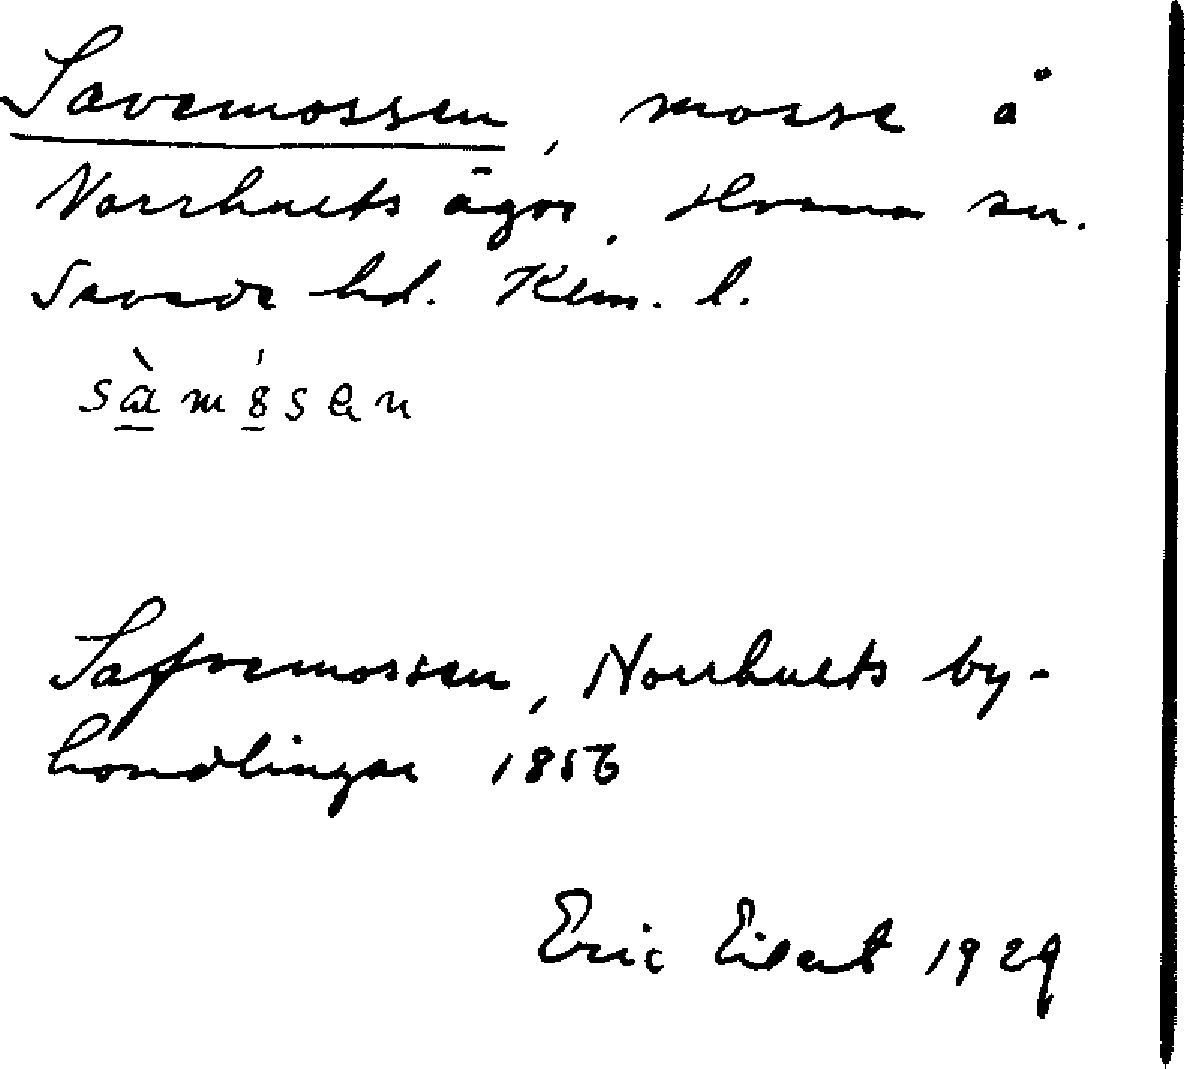 Savemossen, mosse å
Norrhults ägor. Hvena sn.
Sevede hd. Klm. l.
Safvemossen, Norrhults by-
handlingar 1856
Eric Eilert 1929